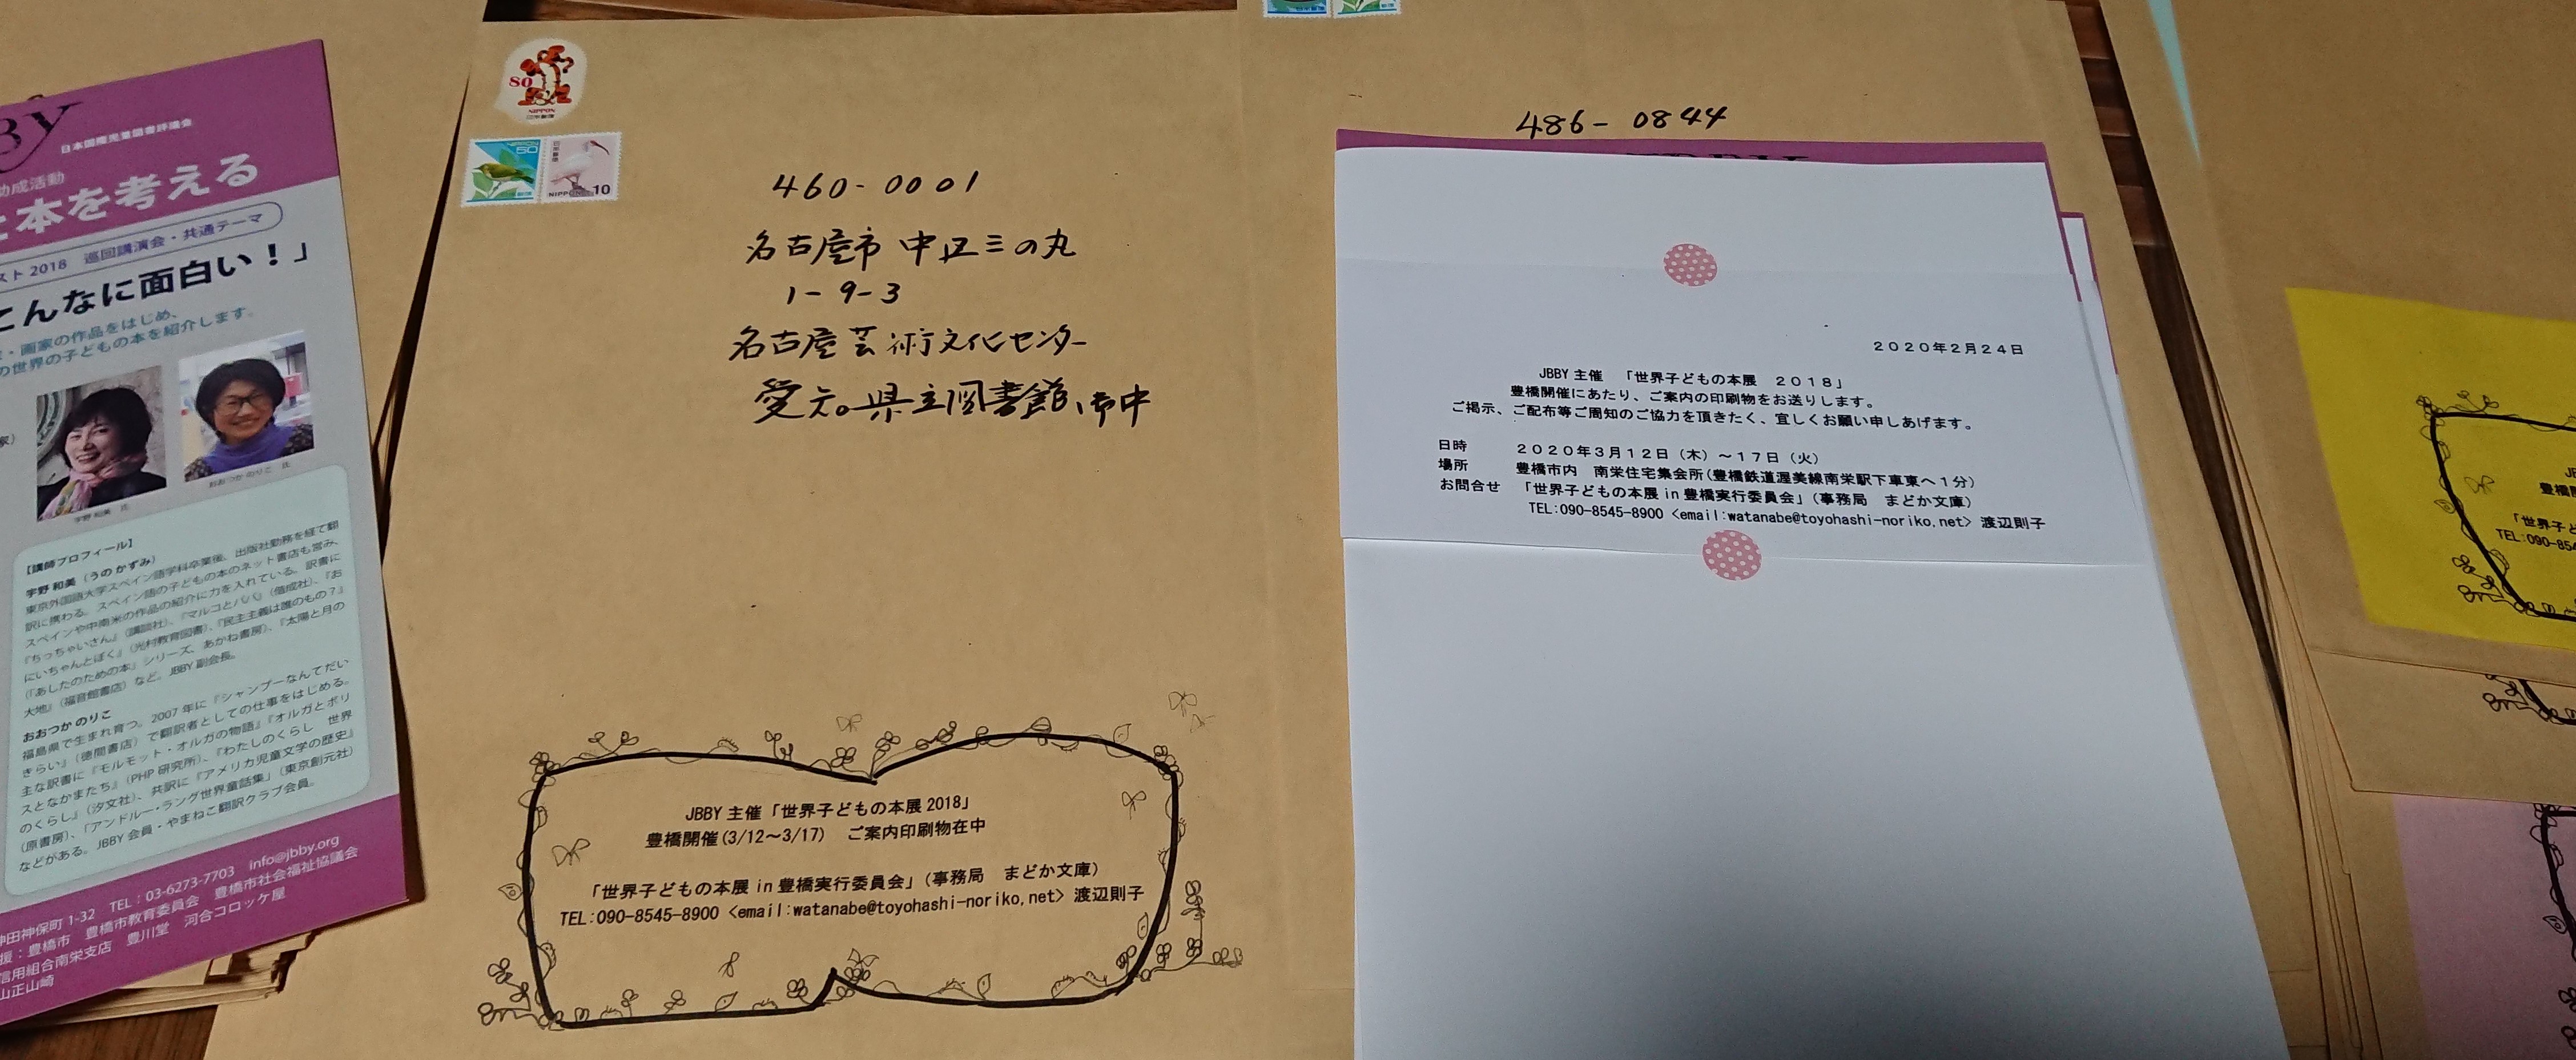 BY
日本国際児童図書評議会
助成活動
本を考える
スト2018 巡回講演会・共通テーマ
こんなに面白い！」
・画家の作品をはじめ、
の世界の子どもの本を紹介します。
宇野 和美 氏
おおつか のりこ 氏
【講師プロフィール】
宇野 和美（うの かずみ）
東京外国語大学スペイン語学科卒業後、出版社勤務を経て翻
訳に携わる。スペイン語の子どもの本のネット書店も営み、
スペインや中南米の作品の紹介に力を入れている。訳書に
『ちっちゃいさん』（講談社）、『マルコとパパ』（偕成社）、『お
にいちゃんとぼく』（光村教育図書）、『民主主義は誰のもの？』
（「あしたのための本」シリーズ、あかね書房）、『太陽と月の
大地』（福音館書店）など。JBBY 副会長。
おおつか のりこ
福島県で生まれ育つ。2007 年に『シャンプーなんてだい
きらい』（徳間書店）で翻訳者としての仕事をはじめる。
主な訳書に『モルモット・オルガの物語』『オルガとボリ
スとなかまたち』（PHP 研究所）、『わたしのくらし 世界
のくらし』（汐文社）、共訳に『アメリカ児童文学の歴史』
（原書房）、「アンドルー・ラング世界童話集」（東京創元社）
などがある。JBBY 会員・やまねこ翻訳クラブ会員。
神田神保町 1-32 TEL：03-6273-7703 info@jbby.org
援：豊橋市 豊橋市教育委員会 豊橋市社会福祉協議会
信用組合南栄支店 豊川堂 河合コロッケ屋
山正山崎
80
NIPPON
日本郵便
NIPPON
50
日本郵便
NIPPON 10
460-0001
名古屋市 中区三の丸
1-9-3
名古屋芸術文化センター
愛知県立図書館 御中
JBBY 主催「世界子どもの本展 2018」
豊橋開催(3/12～3/17) ご案内印刷物在中
「世界子どもの本展 in 豊橋実行委員会」（事務局 まどか文庫）
TEL:090-8545-8900 <email:watanabe@toyohashi-noriko.net> 渡辺則子
486-0844
２０２０年２月２４日
JBBY 主催 「世界子どもの本展 ２０１８」
豊橋開催にあたり、ご案内の印刷物をお送りします。
ご掲示、ご配布等ご周知のご協力を頂きたく、宜しくお願い申しあげます。
日時 ２０２０年３月１２日（木）～１７日（火）
場所 豊橋市内 南栄住宅集会所（豊橋鉄道渥美線南栄駅下車東へ１分）
お問合せ 「世界子どもの本展 in 豊橋実行委員会」（事務局 まどか文庫）
TEL:090-8545-8900 <email:watanabe@toyohashi-noriko.net> 渡辺則子
豊橋
「世界子ど
TEL:090-854